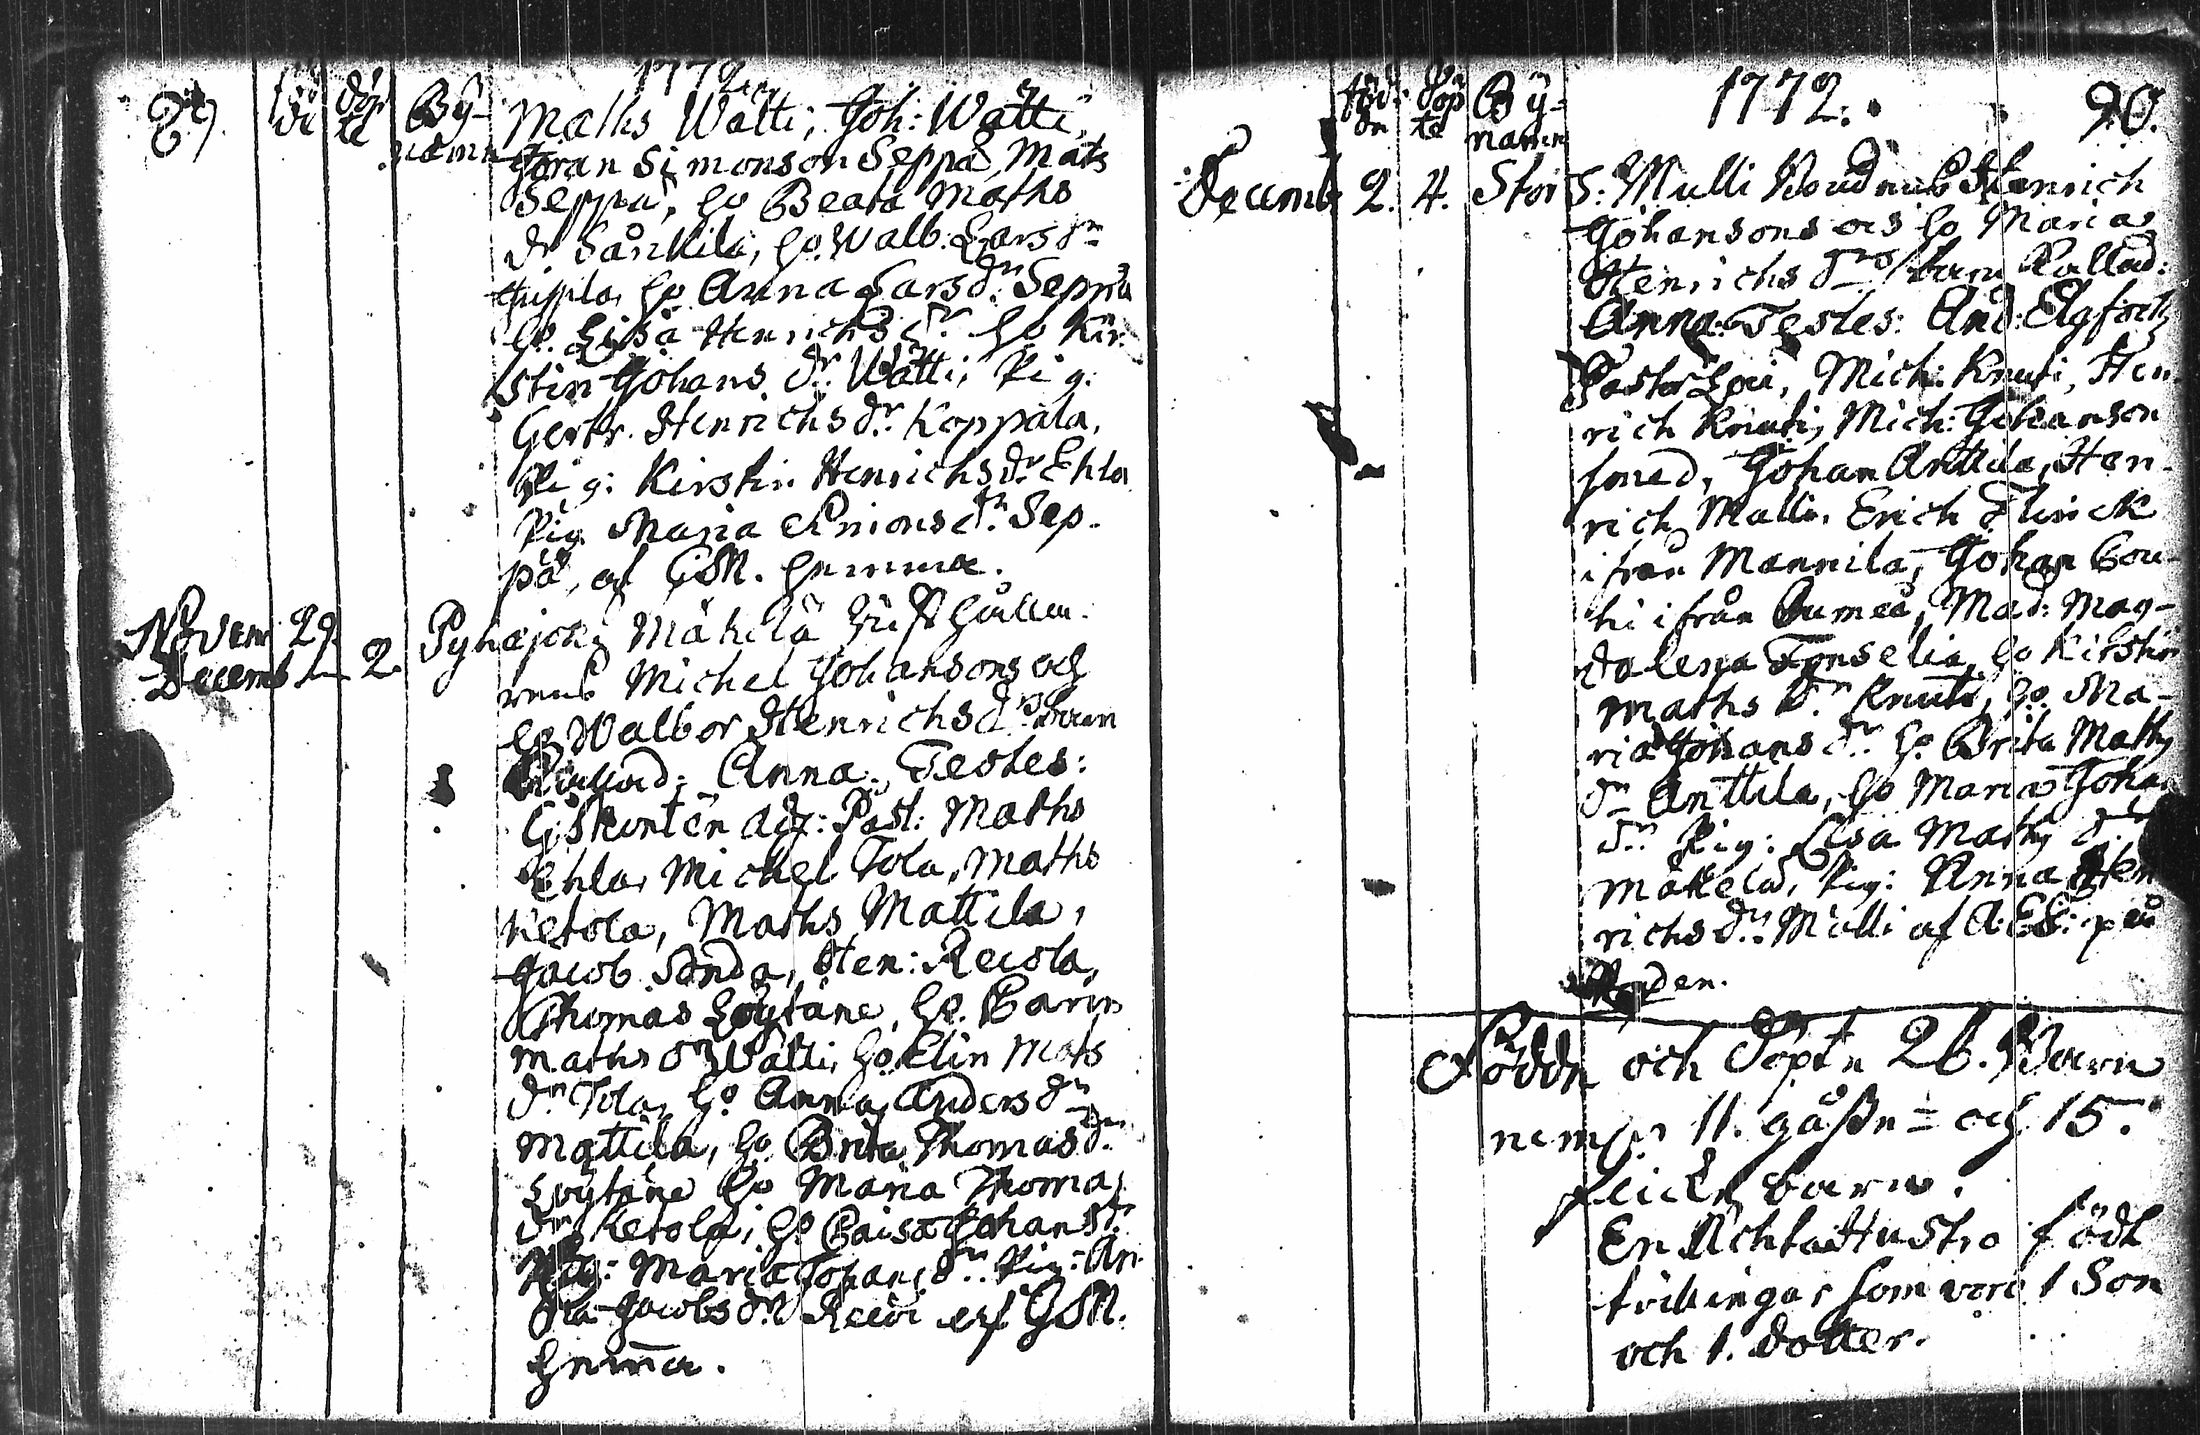 1772
89. Döp te By- namn Maths Wätti, Joh: Wätti,
Göran Simonson Seppä, Mats
Seppä, ho Beata Maths
dr Sånkila, ho. Walb: Lars dr
ho Anna Lars dr Seppä
ho. Lisa Henrichs dr ho Kir-
stin Johans dr Wätti, Pig:
Gertr. Henrichs dr Koppala,
Pig: Kirstin Henrichs dr Ehla
Pig Maria Simons dr Sep-
pä, af GSM. hemma.
Novem 29. Decemb 2. Pyhajoki Mäkilä
Michel Johansons och
ho Walbor Henrichs drs barn
Kallad: Anna. Testes:
G: Skontén adj: Past: Maths
Ehla, Michel Tola, Maths
Ketola, Maths Mattila,
Jacob Sonda, Hen: Recola,
Thomas Löytäne, ho. Carin
Maths dr Wätti, ho Elin Mats
dr Tola, ho Anna Anders dr
Mattila, ho Brita Thomas dr
Löytäne ho Maria Thomas
dr Ketola, ho Caisa Johans dr
Pig: Maria Johans dr. Pig: An-
na Jacobs dr af GSM.
hemma.
föd: de döp te By- namn 1772. 90.
Decemb 2. 4. Stor S: Mulli Bondens Henrich
Johansons och ho Maria
Henrichs drs barn Kallad:
Anna. Testes: And: Elgfoth
Pastor Loci, Mich: Knuti, Hen-
rich Knuti, Mich: Johanson
Johan Anttila, Hen-
rich Mulli, Erich Flinck
ifrån Mannila, Johan Cou-
hi ifrån Mad: Mag-
dalena ho Kirstin
Maths dr Knuti, ho. Ma-
ria Johans dr ho Brita Maths
dr Anttila, ho Maria Johans
dr Pig: Lisa Maths dr
Mäkelä, Pig: Anna Hen-
richs dr Mulli af A: E: på
Födde och Döpte 26. Barn
neml. 11. gåsse = och 15.
flicke barn.
En Ächta Hustro födt
tvillingar som voro 1 Son
och 1. dotter.